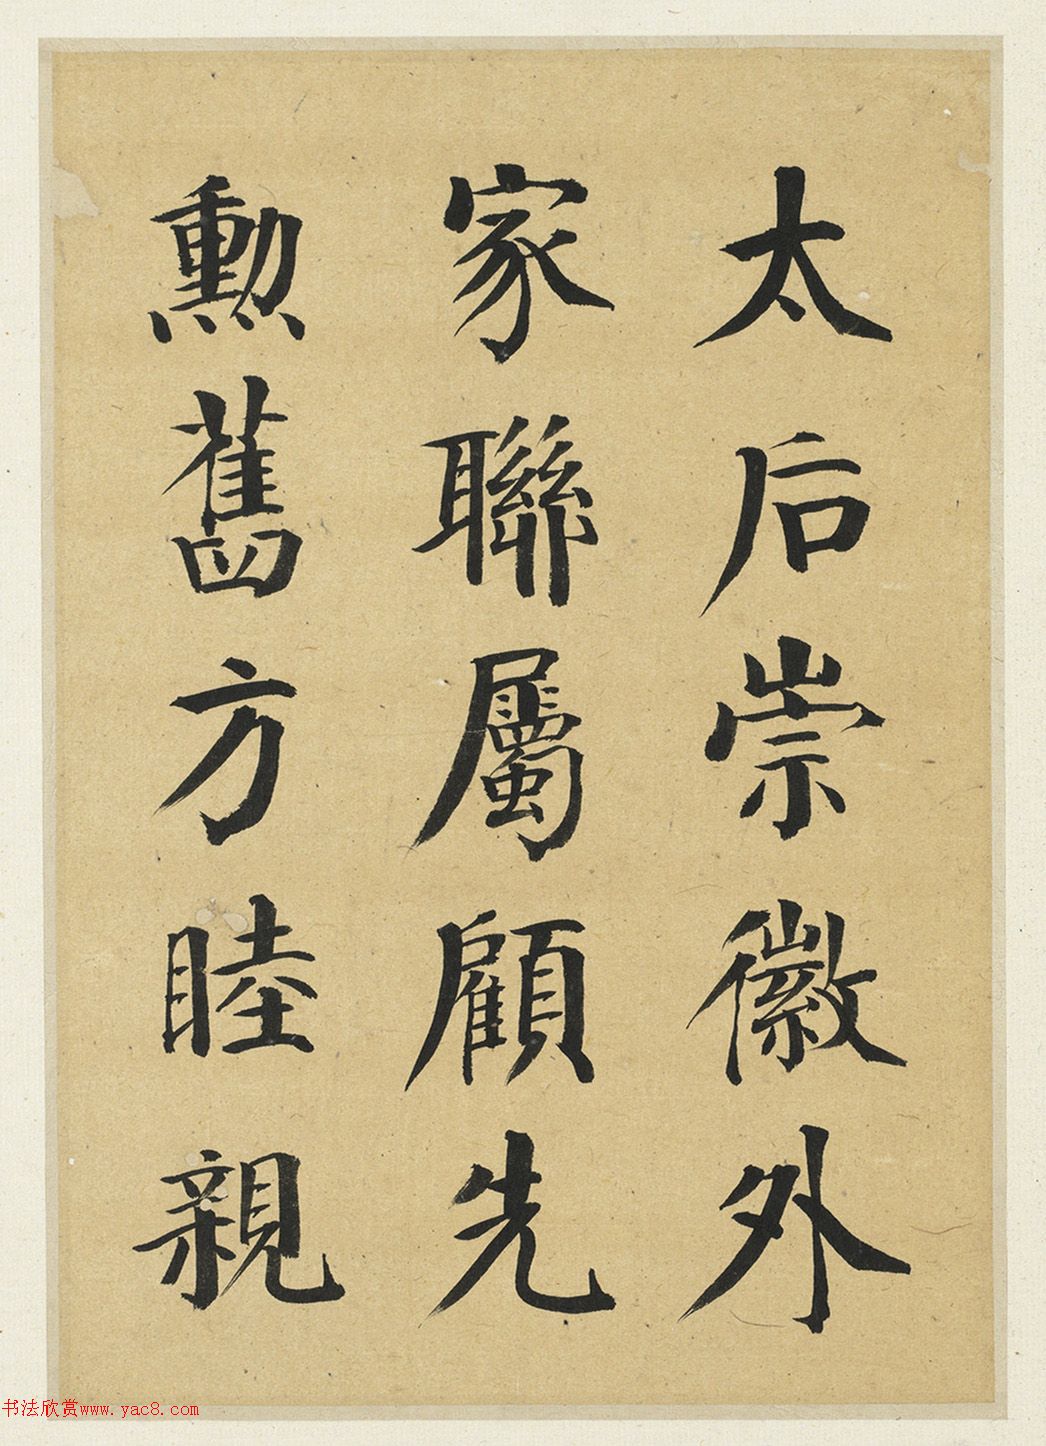 太后崇徽外
家聯屬顧先
勳舊方睦親
书法欣赏www.yac8.com